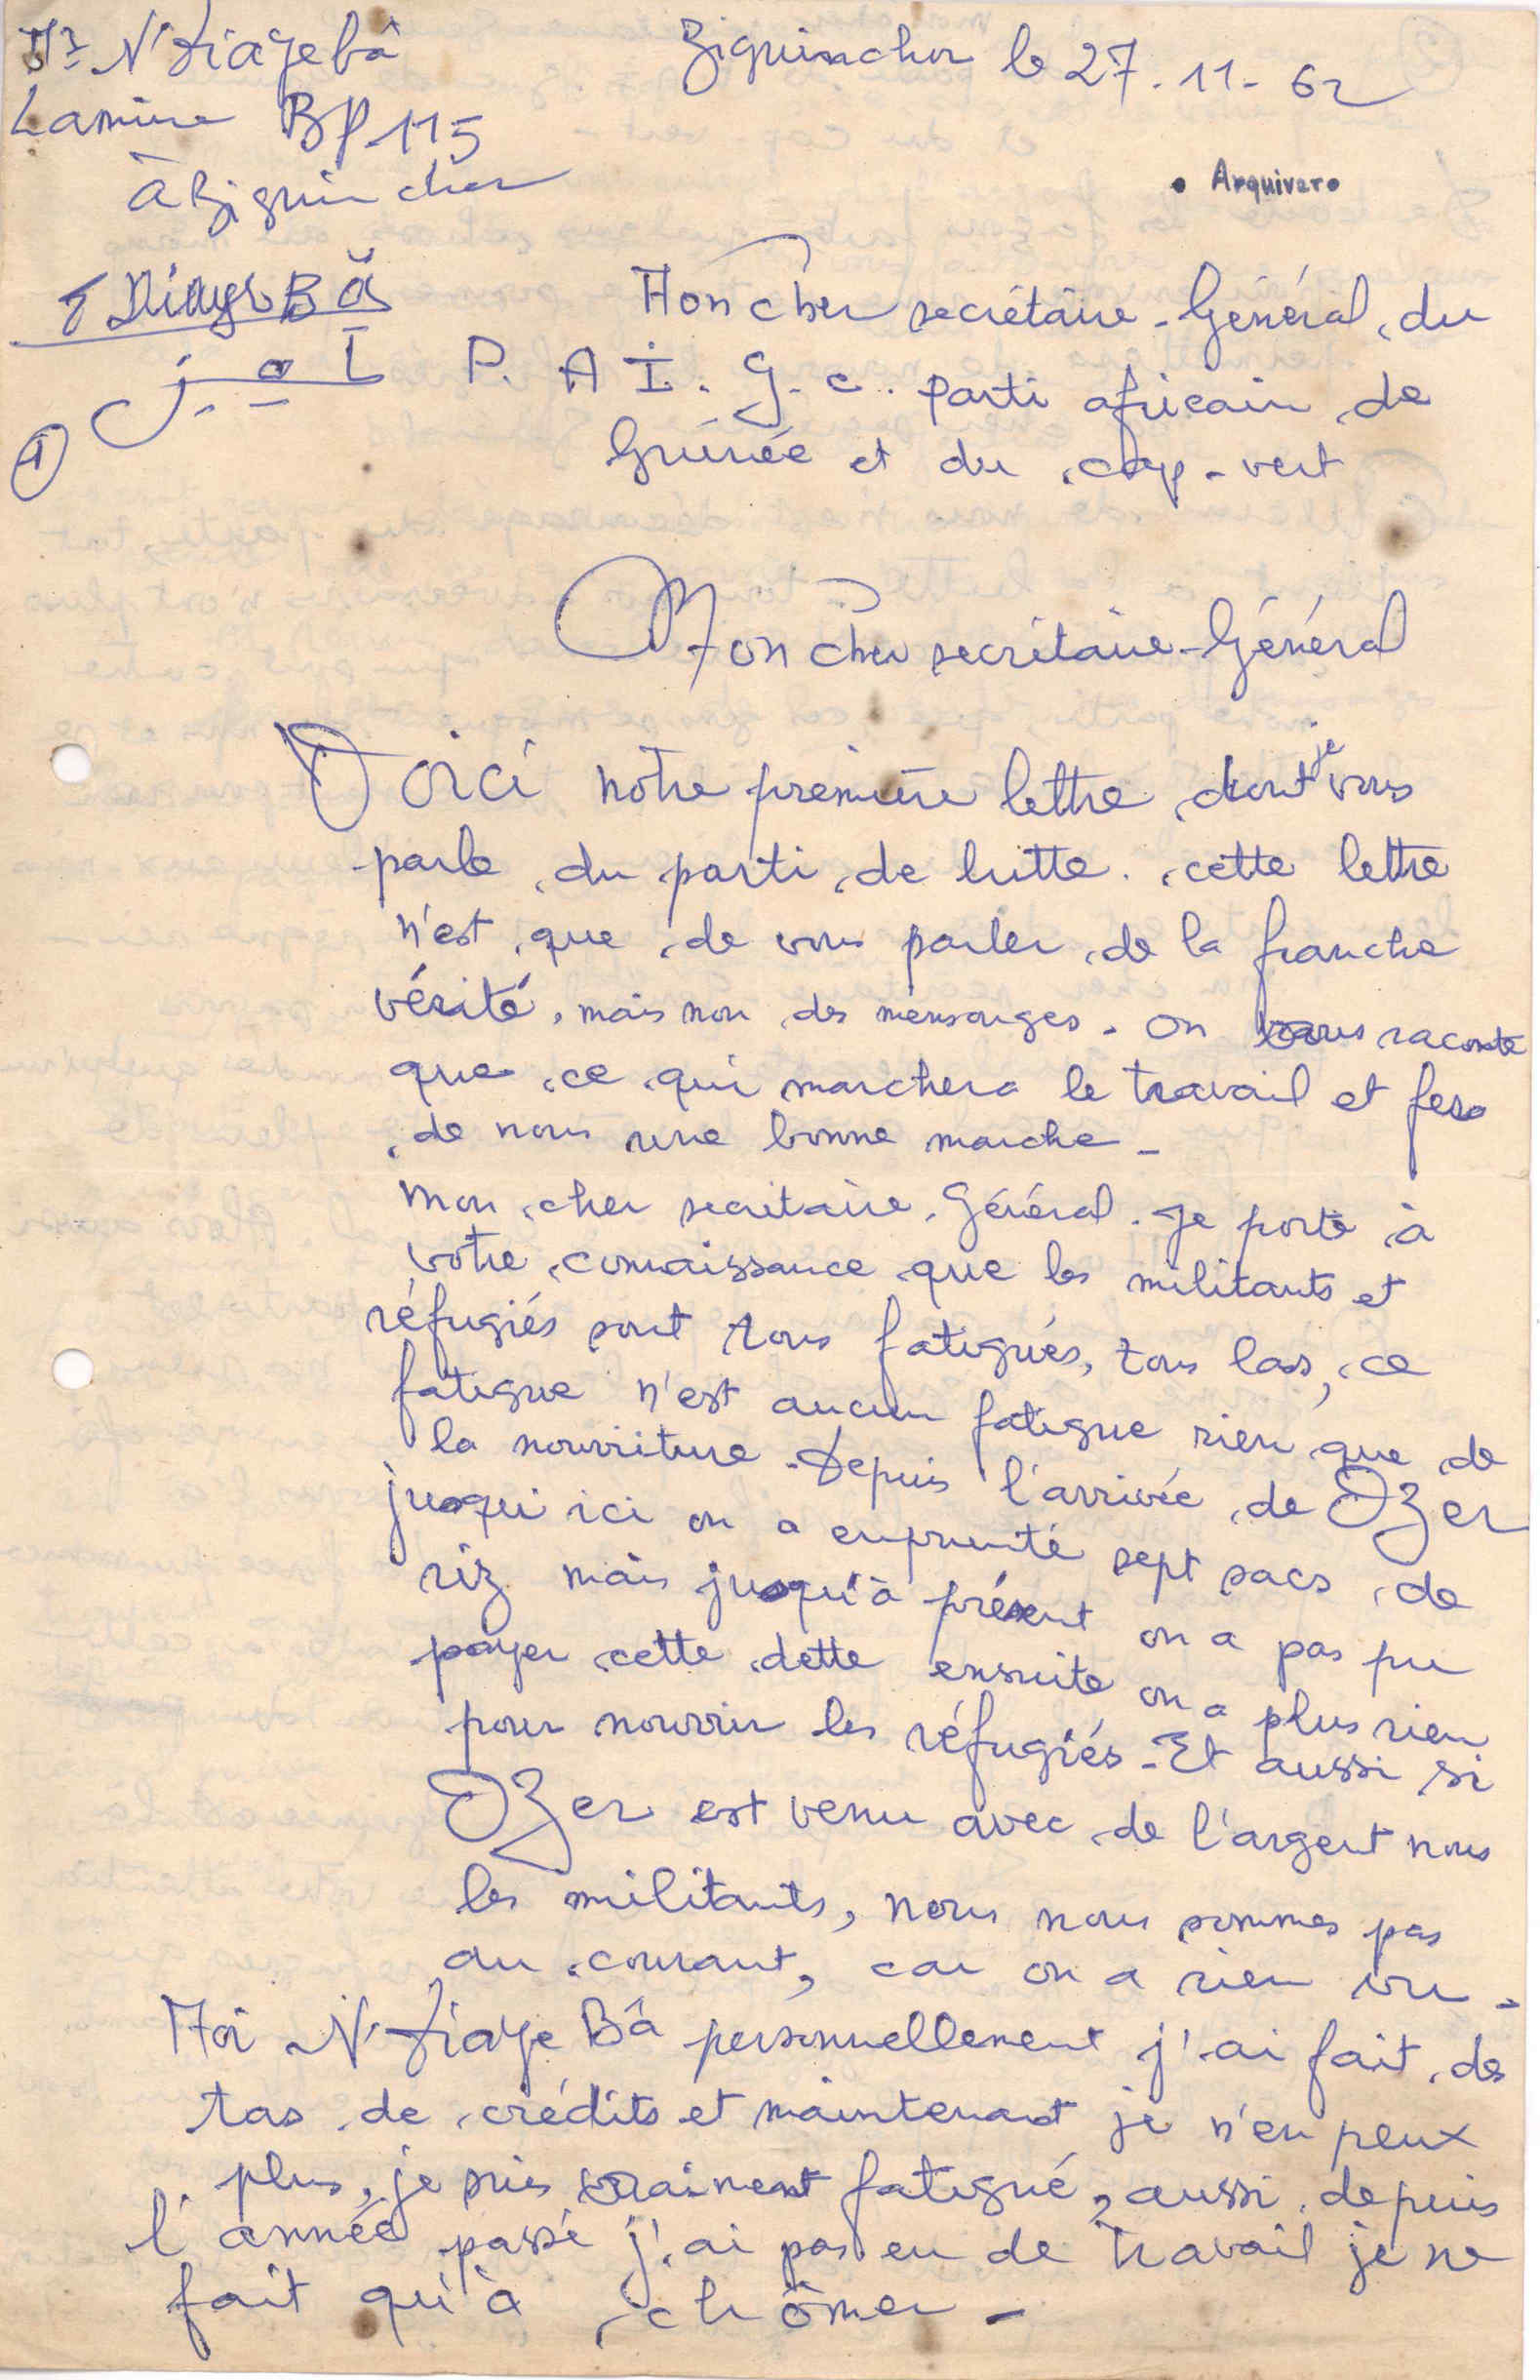 Mr N'Diaye bâ
Lamine BP 115
à Ziguinchor
Ziguinchor le 27-11-62
• Arquivar •
NDiaye Bâ
①
Mon cher secrétaire-Général du
P. A I. G. C. parti africain de
Guinée et du cap-vert
Mon cher secrétaire-Général
Voici notre première lettre dont je vous
parle du parti de lutte. cette lettre
n'est que de vous parler de la franche
vérité, mais non des mensonges. On vous raconte
que ce qui marchera le travail et fera
de nous une bonne marche -
Mon cher secrétaire Général. Je porte à
votre connaissance que les militants et
réfugiés sont tous fatigués, tous las, ce
fatigue n'est aucun fatigue rien que de
la nourriture. Depuis l'arrivée de OZer
jusqu'ici on a emprunté sept sacs de
riz mais jusqu'à présent on a pas pu
payer cette dette ensuite on a plus rien
pour nourrir les réfugiés - Et aussi si
OZer est venu avec de l'argent nous
les militants, nous nous sommes pas
au courant, car on a rien vu -
Moi N'Diaye Bâ personnellement j'ai fait des
tas de crédits et maintenant je n'en peux
plus, je suis vraiment fatigué, aussi depuis
l'année passé j'ai pas eu de travail je ne
fait qu'à chômer -